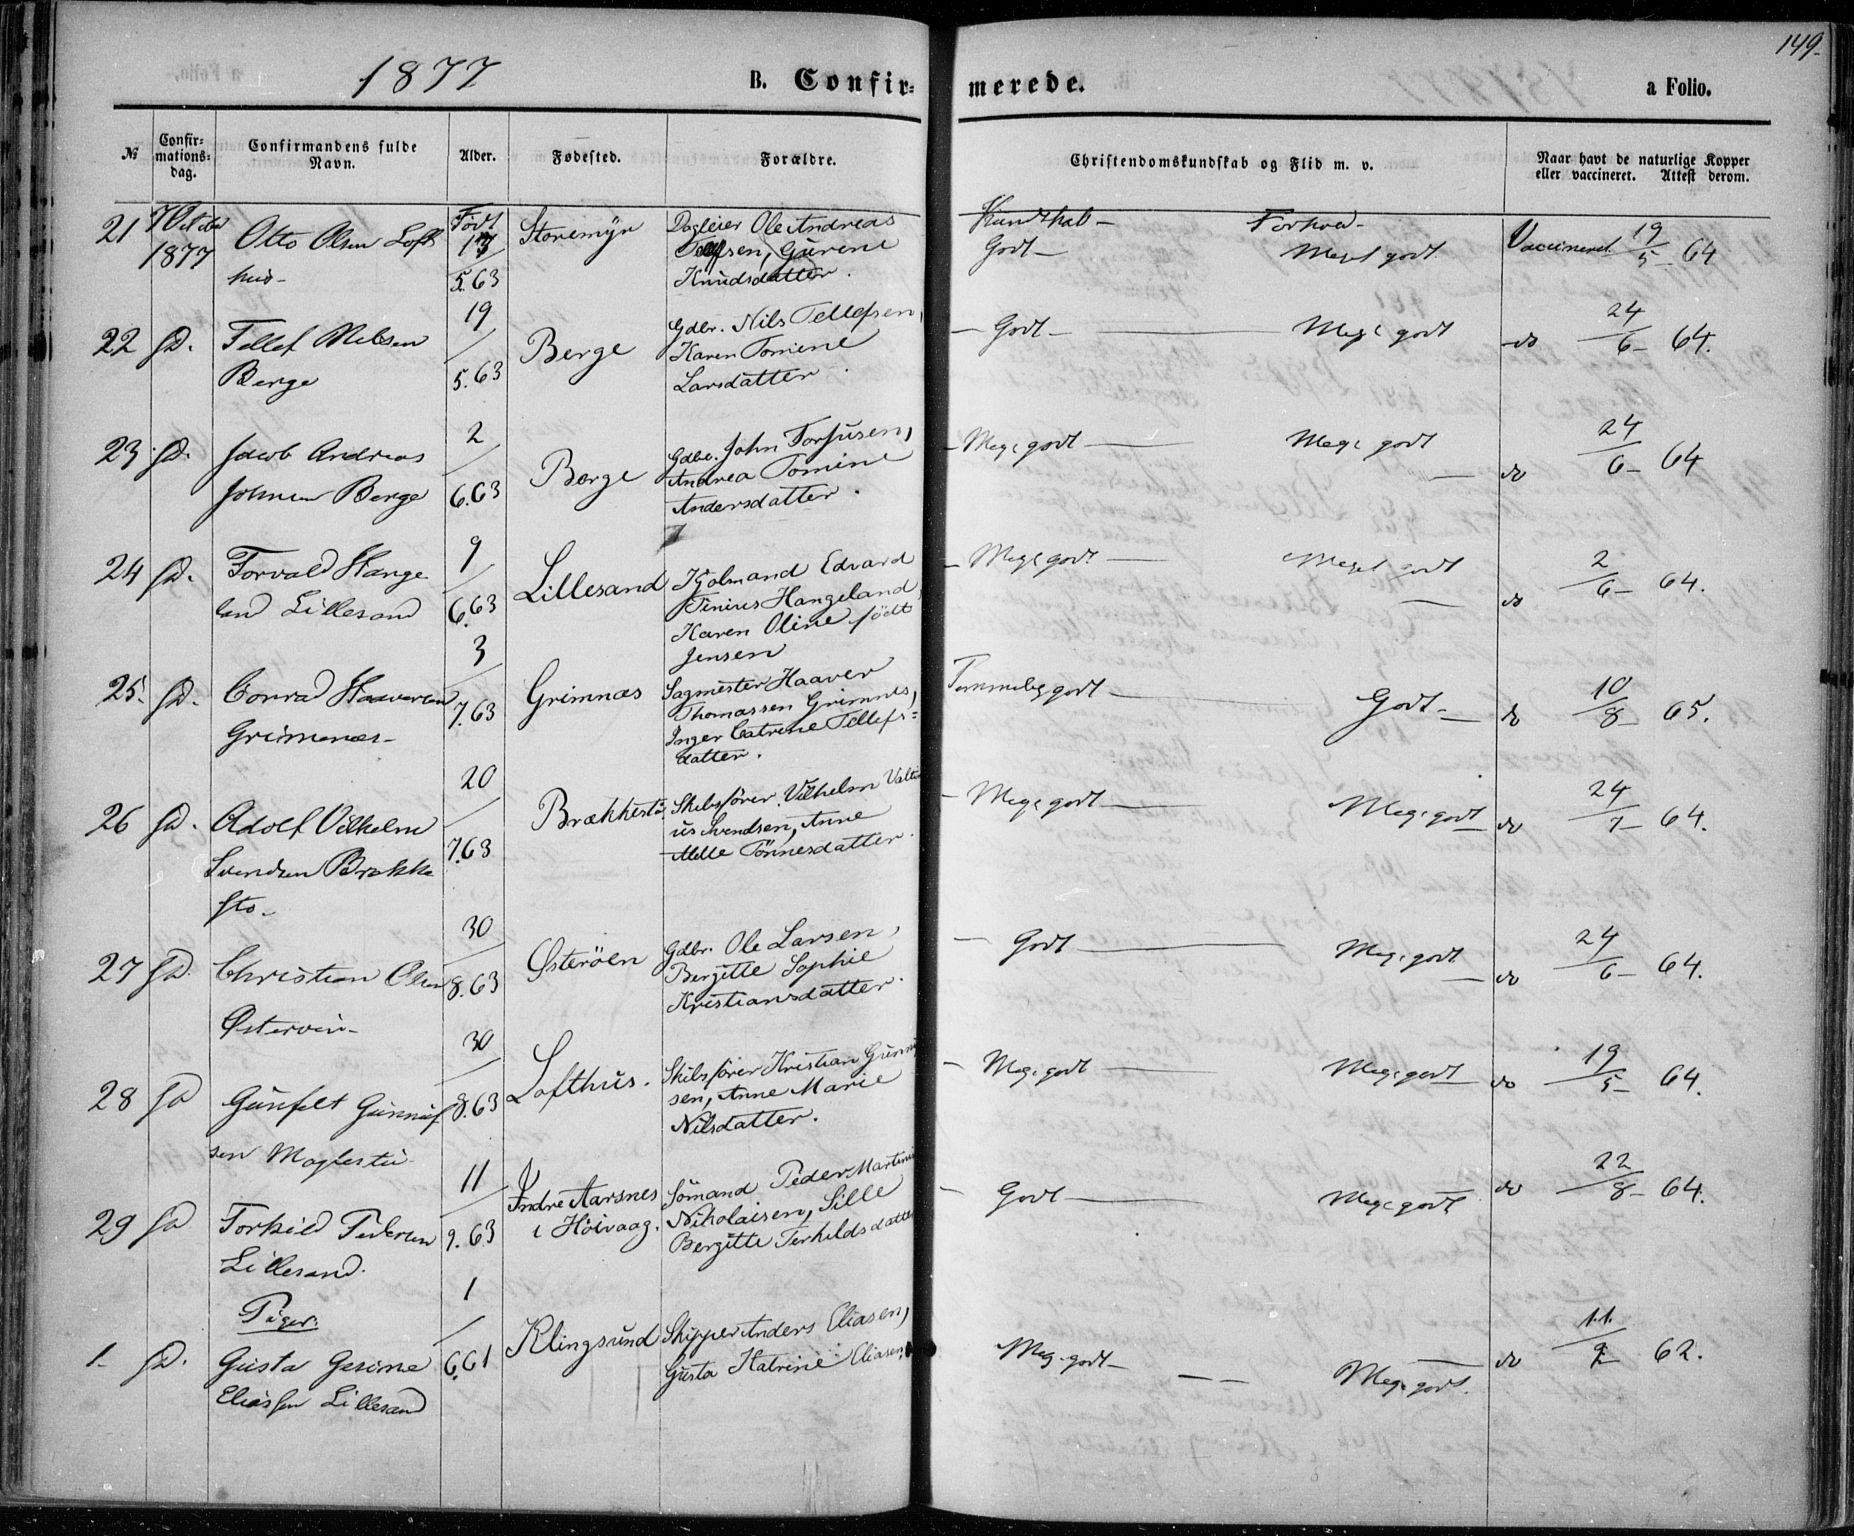 149.
1877 B. Confir- merede. a Folio.
№ Confir-mations-dag. Confirmandens fulde Navn. Alder. Fødested. Forældre. Christendomskundskab og Flid m. v. Naar havt de naturlige Kopper eller vaccineret. Attest derom.
21 7 Octbr 1877 Otto Olsen Lofthus- Født 5.63 Storemyr Kundskab- Godt- Forhold- Meget godt Vaccineret 19/5-64
Dagleier Ole Andreas
Tellefsen, Gurine
Knudsdatter.
22 sd. Tellef Nielsen Berge 19/5.63 Berge - Godt- Meg. godt do 24/6-64.
Gdbr. Nils Tellefsen,
Karen Tomine
Larsdatter.
23 sd. Jacob Andreas Johnsen Berge 2/6.63 Berge - Meg. godt Meg. godt - do 24/6-64
Gdbr. John Torjusen,
Andrea Tomine
Andersdatter.
24 sd. Torvald Hangeland Lillesand 9/6.63 Lillesand - Meg. godt Meget godt - do 2/6-64.
Kjøbmand Edvard
Tinius Hangeland,
Karen Oline født
Jensen
25. sd. Conrad Haaversen Grimenæs- 3/7.63 Grimnæs Temmelig godt Godt- do 10/8-65.
Sagmester Haaver
Thomassen Grimnes,
Inger Catrine Tellefs=
datter.
26 sd. Adolf Vilhelm Svendsen Brækkestø- 20/7.63 Brækkestø - Meg. godt Meg. godt do 24/7-64.
Skibsfører Vilhelm
us Svendsen, Anne
Tönnesdatter.
27 sd. Christian Olsen Østerøen- 30/8.63 Østeröen - Godt Meg. godt do 24/6-64.
Gdbr. Ole Larsen,
Bergitte Sophie
Kristiansdatter.
28 sd 30/8.63 Lofthus. - Meg. godt Meg. godt do 19/5-64.
Skibsfører Kristian
sen, Anne Marie
Nilsdatter.
29 sd Torkild Pedersen Lillesand. 11/9.63 Indre Aarsnes i Höivaag. - Godt Meg. godt do 22/8-64.
Sömand Peder
Nikolaisen, Sille
Bergitte Terkildsdatter
Piger.
1- sd. Gusta Gesine Eliassen Lillesand 1/6.61 Klingsund Meg. godt- Meg. godt. do 62.
Skipper Anders Eliasen,
Gusta Katrine Eliasen